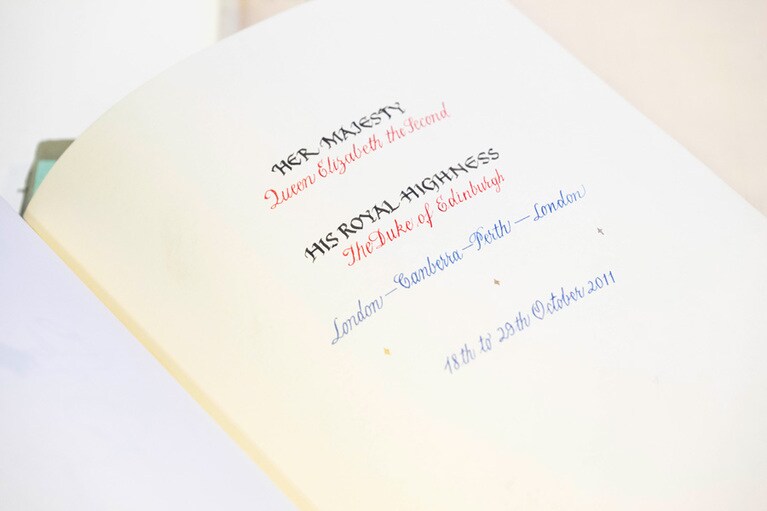 HER MAJESTY
Queen Elizabeth the Second
HIS ROYAL HIGHNESS
The Duke of Edinburgh
London – Canberra – Perth – London
18th to 29th October 2011